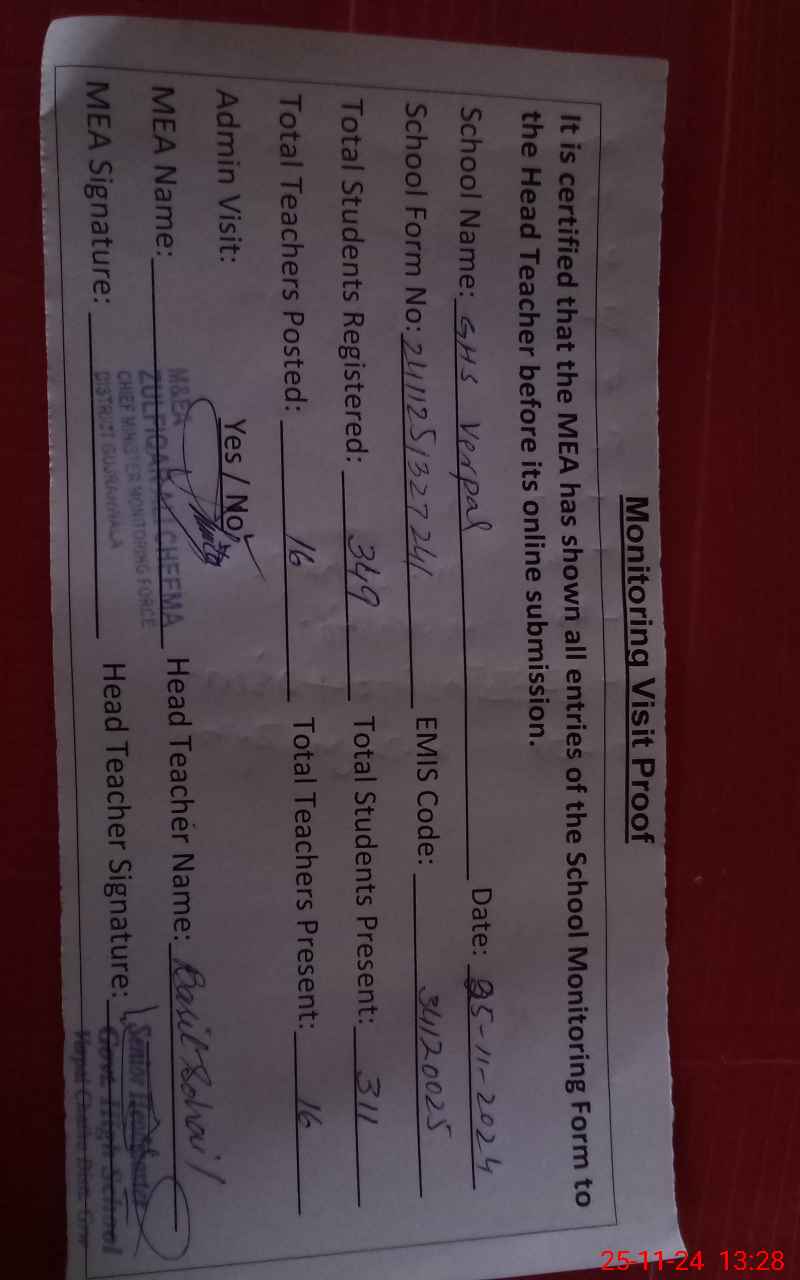 Monitoring Visit Proof
It is certified that the MEA has shown all entries of the School Monitoring Form to
the Head Teacher before its online submission.
School Name: GHS Verpal Date: 25-11-2024
School Form No: 2411251327241 EMIS Code: 34120025
Total Students Registered: 349 Total Students Present: 311
Total Teachers Posted: 16 Total Teachers Present: 16
Admin Visit: Yes / No
MEA Name: Head Teacher Name: Basil Sohail
MEA Signature: Head Teacher Signature:
M&EA
ZULFIQAR CHEEMA
CHIEF MINISTER MONITORING FORCE
DISTRICT GUJRANWALA
Senior Headmaster
Govt. High School
Verpal Chatha Distt. Grw
25-11-24 13:28